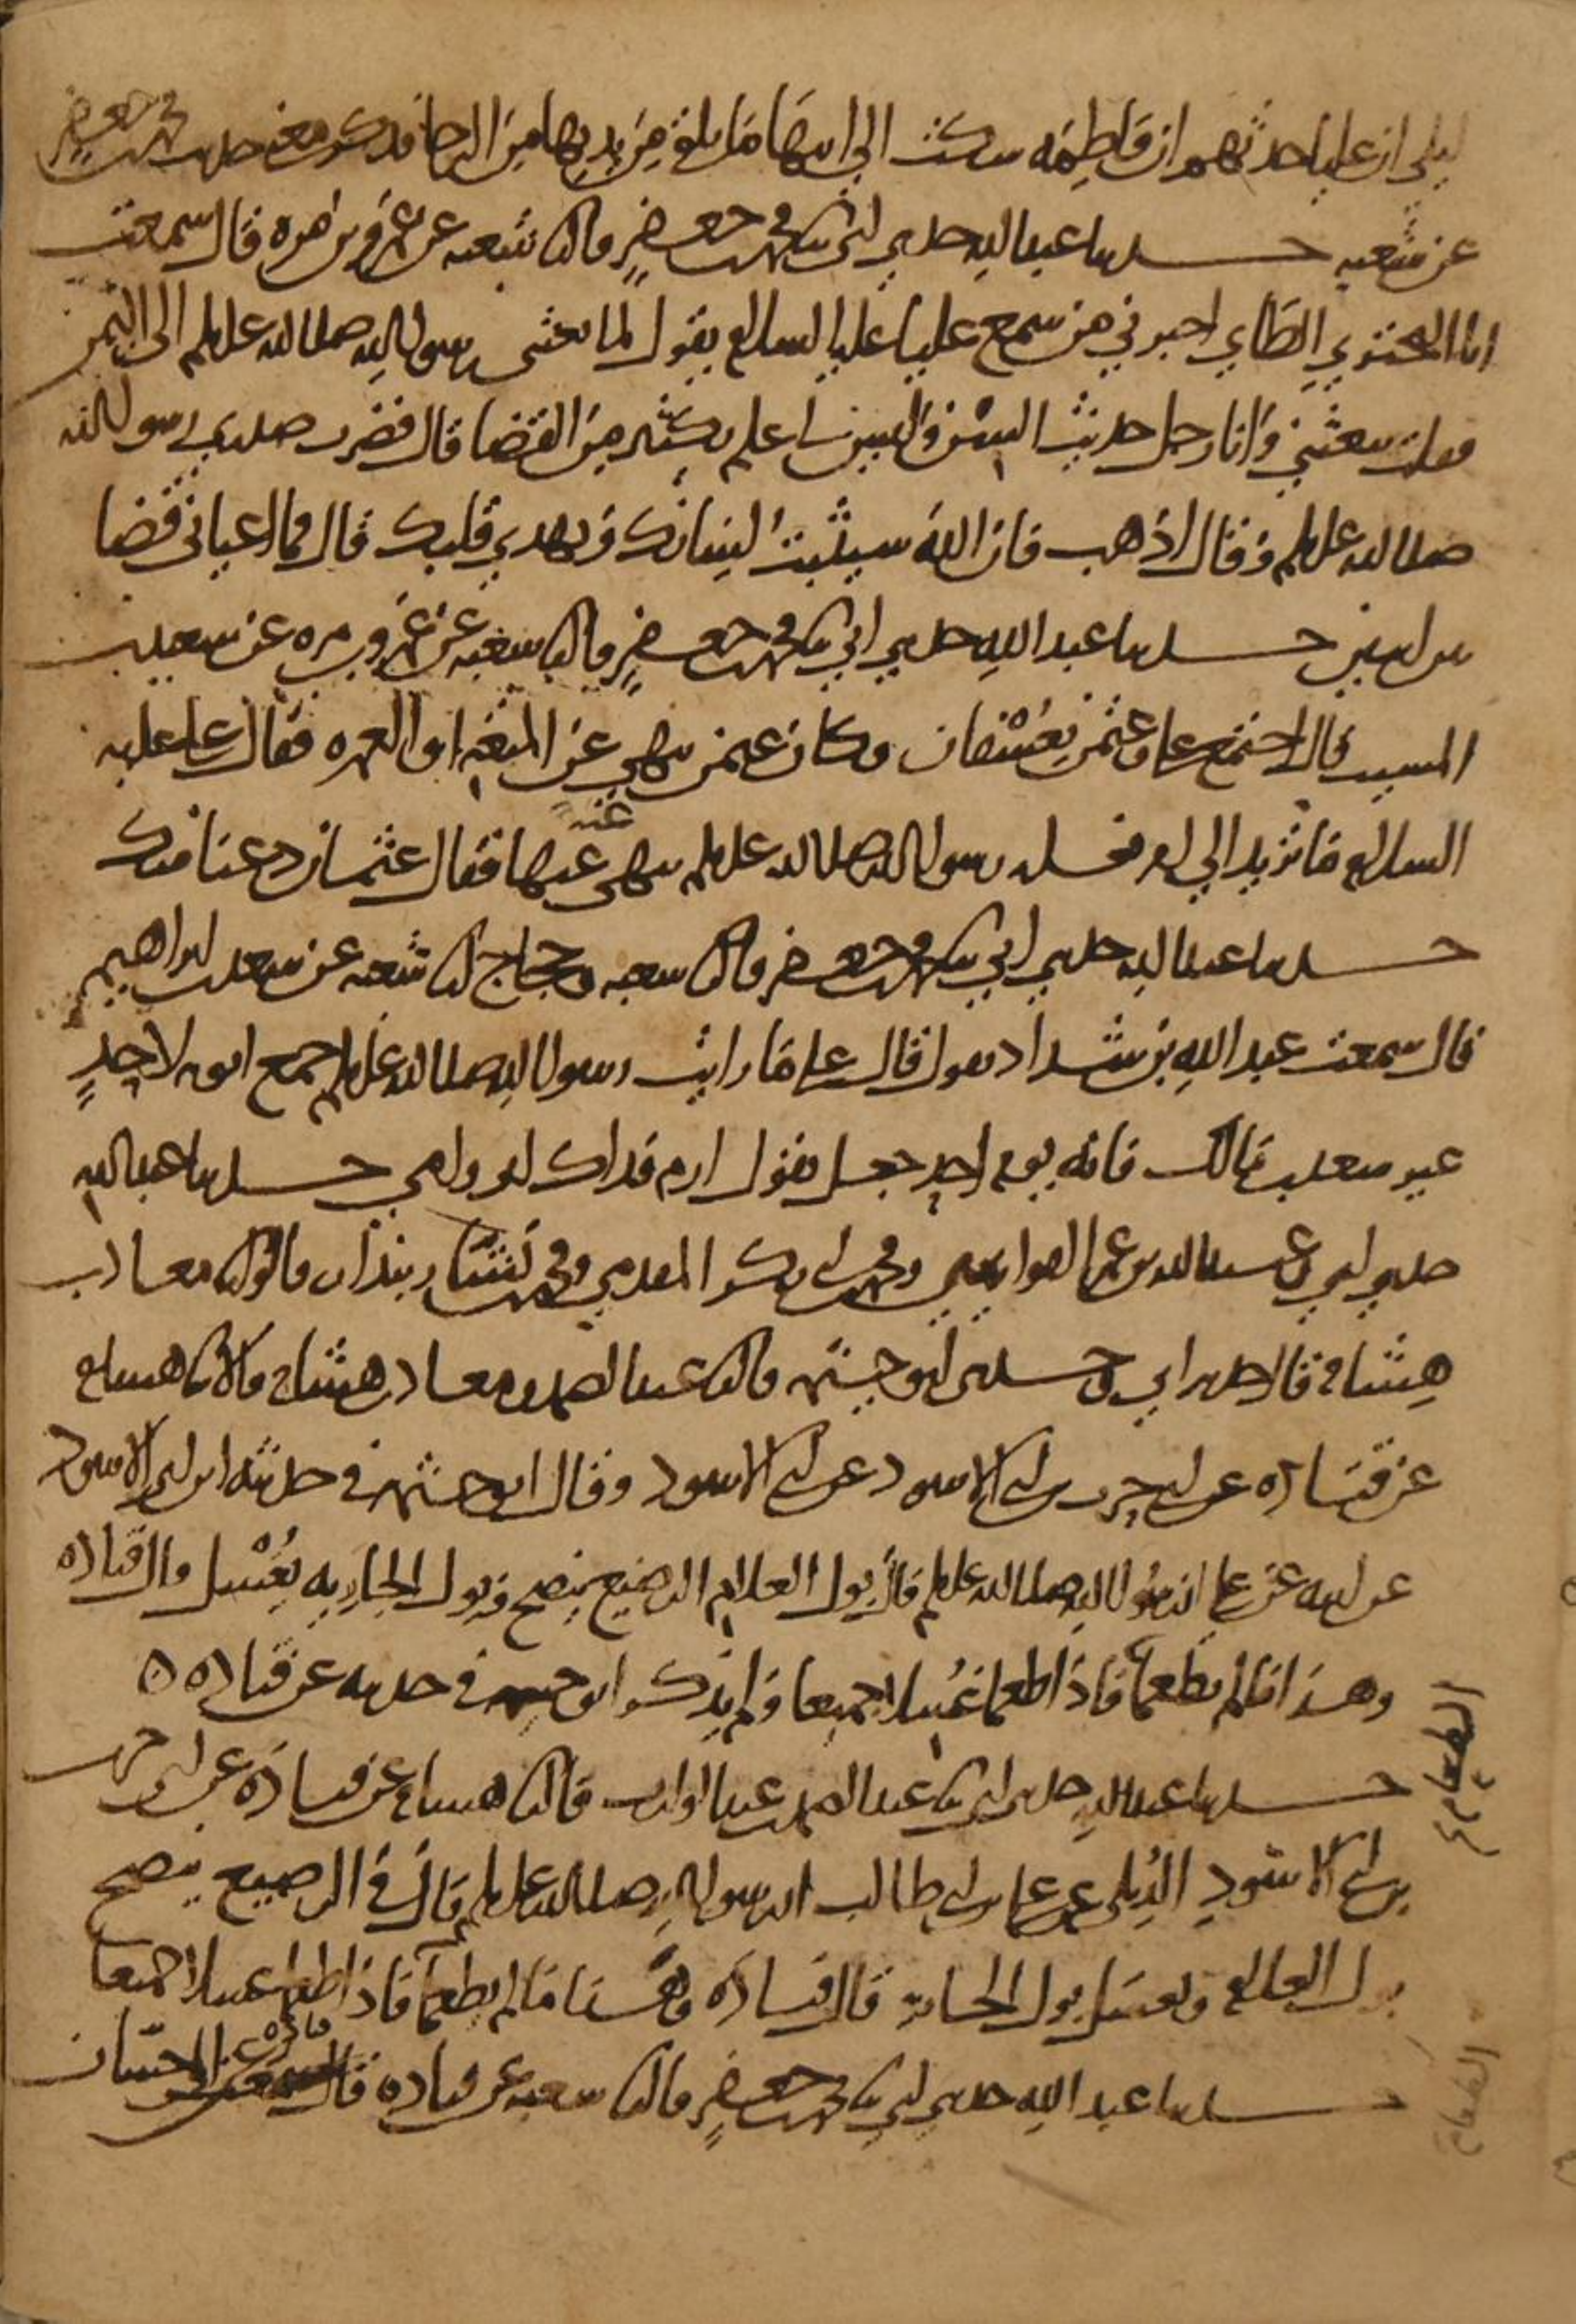 ليلى ان عليا حدثهم ان فاطمة شكت الى ابيها ما تلقى من يديها من الرحا فذكر معنى حديث محمد بن جعفر
عن شعبة حدثنا عبد الله حدثني ابي ثنا محمد بن جعفر قال ثنا شعبة عن عمرو بن مرة قال سمعت
ابا البختري الطاي اخبرني من سمع عليا عليه السلام يقول لما بعثني رسول الله صلى الله عليه وسلم الى اليمن
فقلت تبعثني وانا رجل حديث السن وليس لي علم بكثير من القضا قال فضرب صدري رسول الله
صلى الله عليه وسلم وقال اذهب فان الله سيثبت لسانك ويهدي قلبك قال فما اعياني قضا
بين اثنين حدثنا عبد الله حدثني ابي ثنا محمد بن جعفر قال ثنا شعبة عن عمرو بن مرة عن سعيد بن
المسيب قال اجتمع علي وعثمن بعسفان وكان عثمن ينهى عن المتعة او العمرة فقال علي عليه
السلام ما تريد الى امر فعله رسول الله صلى الله عليه وسلم تنهى عنها عنه فقال عثمان دعنا منك
حدثنا عبد الله حدثني ابي ثنا محمد بن جعفر قال ثنا شعبة وحجاج ثنا شعبة عن سعد بن ابراهيم
قال سمعت عبد الله بن شداد يقول قال علي ما رايت رسول الله صلى الله عليه وسلم جمع ابويه لاحد
غير سعد بن مالك فانه يوم احد جعل يقول ارم فداك ابي وامي حدثنا عبد الله
حدثني ابي وعبيد الله بن عمر القواريري ومحمد بن ابي بكر المقدمي ومحمد بن بشار بندار قالوا ثنا معاذ بن
هشام قال حدثني ابي وحدثني ابو خيثمة قال ثنا عبد الصمد ومعاذ بن هشام قالا ثنا هشام
عن قتادة عن ابي حرب بن ابي الاسود عن ابي الاسود وقال ابو خيثمة في حديثه ابن ابي الاسود
عن ابيه عن علي ان رسول الله صلى الله عليه وسلم قال بول الغلام الرضيع ينضح وبول الجارية يغسل قال قتادة
وهذا ما لم يطعما فاذا طعما غسلا جميعا ولم يذكر ابو خيثمة في حديثه عن قتادة ه
حدثنا عبد الله حدثني ابي ثنا عبد الصمد بن عبد الوارث قال ثنا هشام عن قتادة عن ابي حرب
بن ابي الاسود الديلي عن علي بن ابي طالب ان رسول الله صلى الله عليه وسلم قال في الرضيع ينضح
بول الغلام ويغسل بول الجارية قال قتادة وهذا ما لم يطعما فاذا طعما غسلا جميعا
حدثنا عبد الله حدثني ابي ثنا محمد بن جعفر قال ثنا شعبة عن قتادة قال
الطعام
الطعام